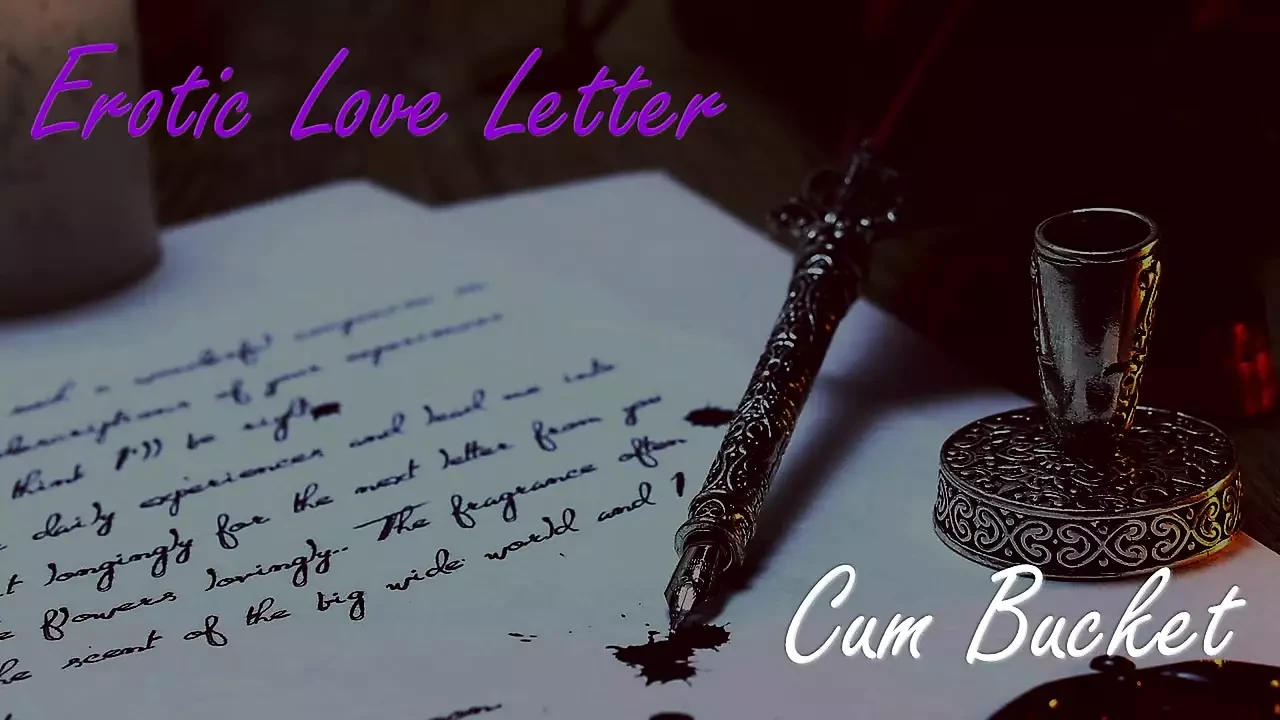 Erotic Love Letter
descriptions of your experiences
think I'll be right
daily experiences and lead me into
longingly for the next letter from you
flowers lovingly.. The fragrance often
scent of the big wide world and I
Cum Bucket